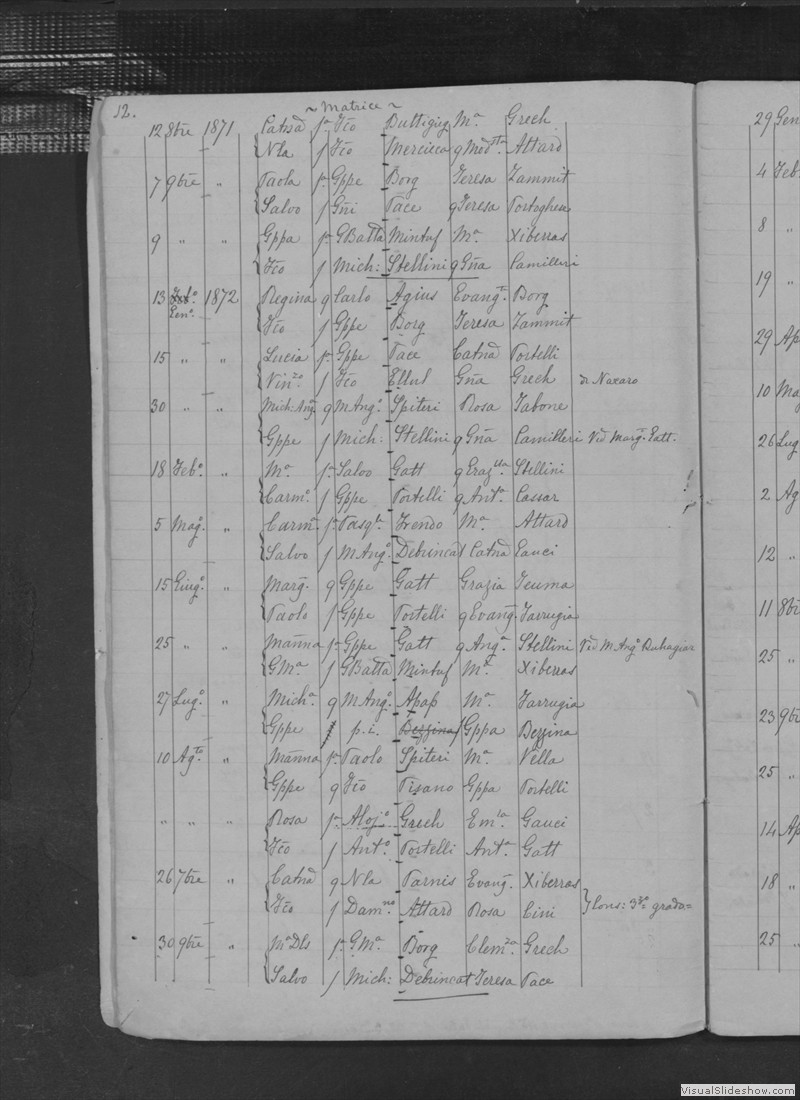 12. ~ Matrice ~
12 8bre 1871 Catnã fa Fco Buttigieg Ma Grech
Nla f Fco Mercieca q Modta Attard
7 9bre " Paola fa Gppe Borg Teresa Zammit
Salvo f Gñi Pace q Teresa Portoghese
9 " " Gppa fa GBatta Mintuf Ma Xiberras
Fco f Mich: Stellini q Gña Camilleri
13 Feb.o 1872 Regina q Carlo Agius Evangta Borg
Gen.o
Fco f Gppe Borg Teresa Zammit
15 " " Lucia fa Gppe Pace Catnã Portelli
Vinzo f Fco Ellul Gña Grech di Naxaro
30 " " Mich: Ang. q M Ango Spiteri Rosa Tabone
Gppe f Mich: Stellini q Gña Camilleri Vid Marg. Gatt.
18 Feb.o " Ma fa Salvo Gatt q Stellini
Carmo f Gppe Portelli q Anta Cassar
5 Mago " Carma fa Pasqle Frendo Ma Attard
Salvo f M Ango Debrincat Catnã Gauci
15 Giugo " Marg. q Gppe Gatt Grazia Teuma
Paolo f Gppe Portelli q Evang. Farrugia
25 " " Manna fa Gppe Gatt q Anga Stellini Vid M Ango Buhagiar
GMa f GBatta Mintuf Ma Xiberras
27 Lugo " Micha q M Ango Apap Ma Farrugia
Gppe f p.i. Bezzina Gppa Bezzina
10 Agto " Manna fa Paolo Spiteri Ma Vella
Gppe q Fco Pisano Gppa Portelli
" " " Rosa fa Alojo Grech Emla Gauci
Fco f Anto Portelli Anta Gatt
26 7bre " Catnã q Nla Farnis Evang. Xiberras
Fco f Damno Attard Rosa Cini } Cons: 3° grado =
30 9bre " Ma Dls fa GMa Borg Clemza Grech
Salvo f Mich: Debrincat Teresa Pace
29 Gen
4 Feb
8 "
19 "
29 Ap
10 Ma
26 Lug
2 Ag
12 "
11 8br
25 "
23 9br
25 "
14 Ap
18 "
25 "
VisualSlideshow.com